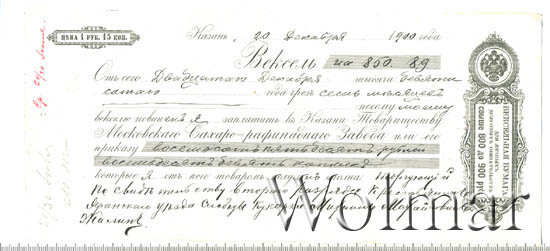 ЦѢНА 1 РУБ. 15 КОП.
Казань, 20 Декабря 1900 года.
Вексель на 850 89
Отъ сего Двадцатаго Декабря тысяча девяти
сотаго года чрезъ семь мѣсяцевъ
по сему моему
векселю повиненъ я заплатить въ Казани Товариществу
Московскаго Сахаро-рафинаднаго Завода или его
приказу восемьсотъ пятьдесятъ рублей
восемьдесятъ девять копѣекъ
которые я отъ него товаромъ получилъ сполна. торгующій
по свидѣтельству второго разряда крестьянинъ
Яранскаго уѣзда Слободы Кукарки Михаилъ
Жилинъ
ВЕКСЕЛЬНАЯ БУМАГА
ДЛЯ ЛИЧНЫХЪ
ДОЛГОВЫХЪ ОБЯЗАТЕЛЬСТВЪ
СВЫШЕ 800 ДО 900 РУБ.
Wolmar